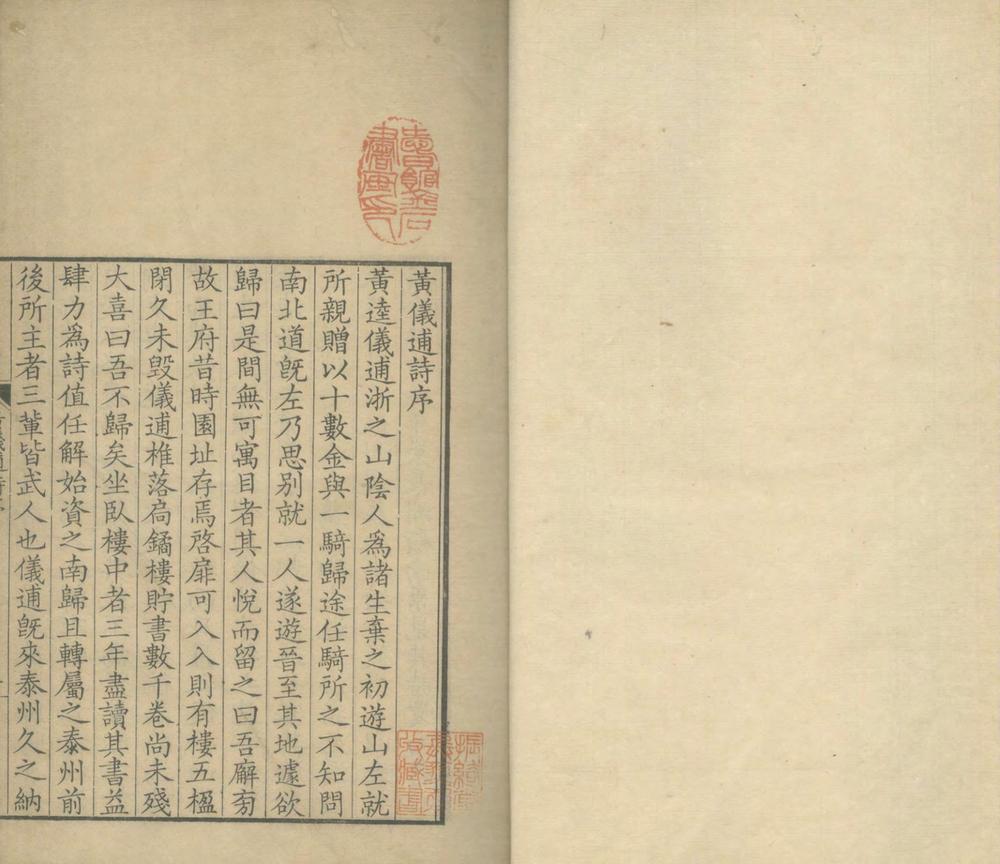 黃儀逋詩序
黃逵儀逋浙之山陰人爲諸生棄之初遊山左就
所親贈以十數金與一騎歸途任騎所之不知問
南北道旣左乃思别就一人遂遊晉至其地遽欲
歸曰是間無可寓目者其人悅而留之曰吾廨旁
故王府昔時園址存焉啓扉可入入則有樓五楹
閉久未毁儀逋椎落扃鐍樓貯書數千卷尚未殘
大喜曰吾不歸矣坐臥樓中者三年盡讀其書益
肆力爲詩值任解始資之南歸且轉屬之泰州前
後所主者三軰皆武人也儀逋旣來泰州久之納